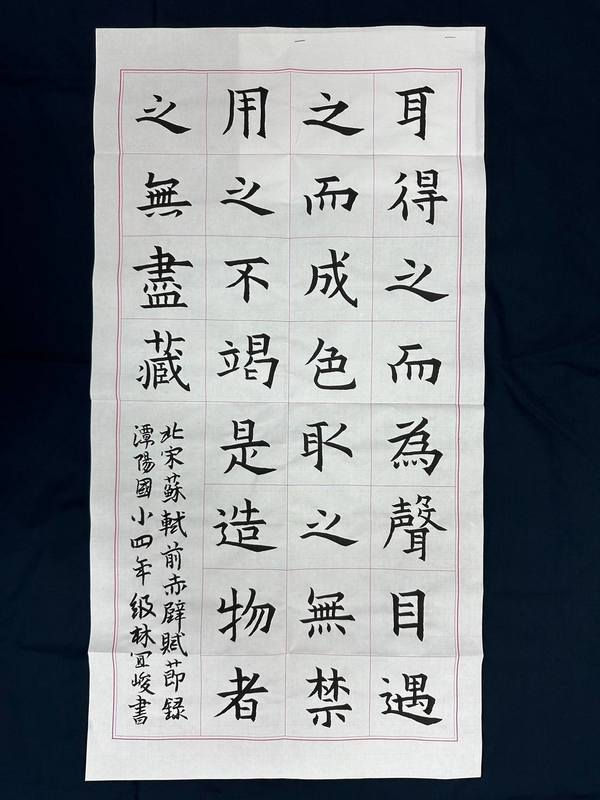 耳得之而為聲目遇
之而成色取之無禁
用之不竭是造物者
之無盡藏
北宋蘇軾前赤壁賦節録
潭陽國小四年級林宜峻書